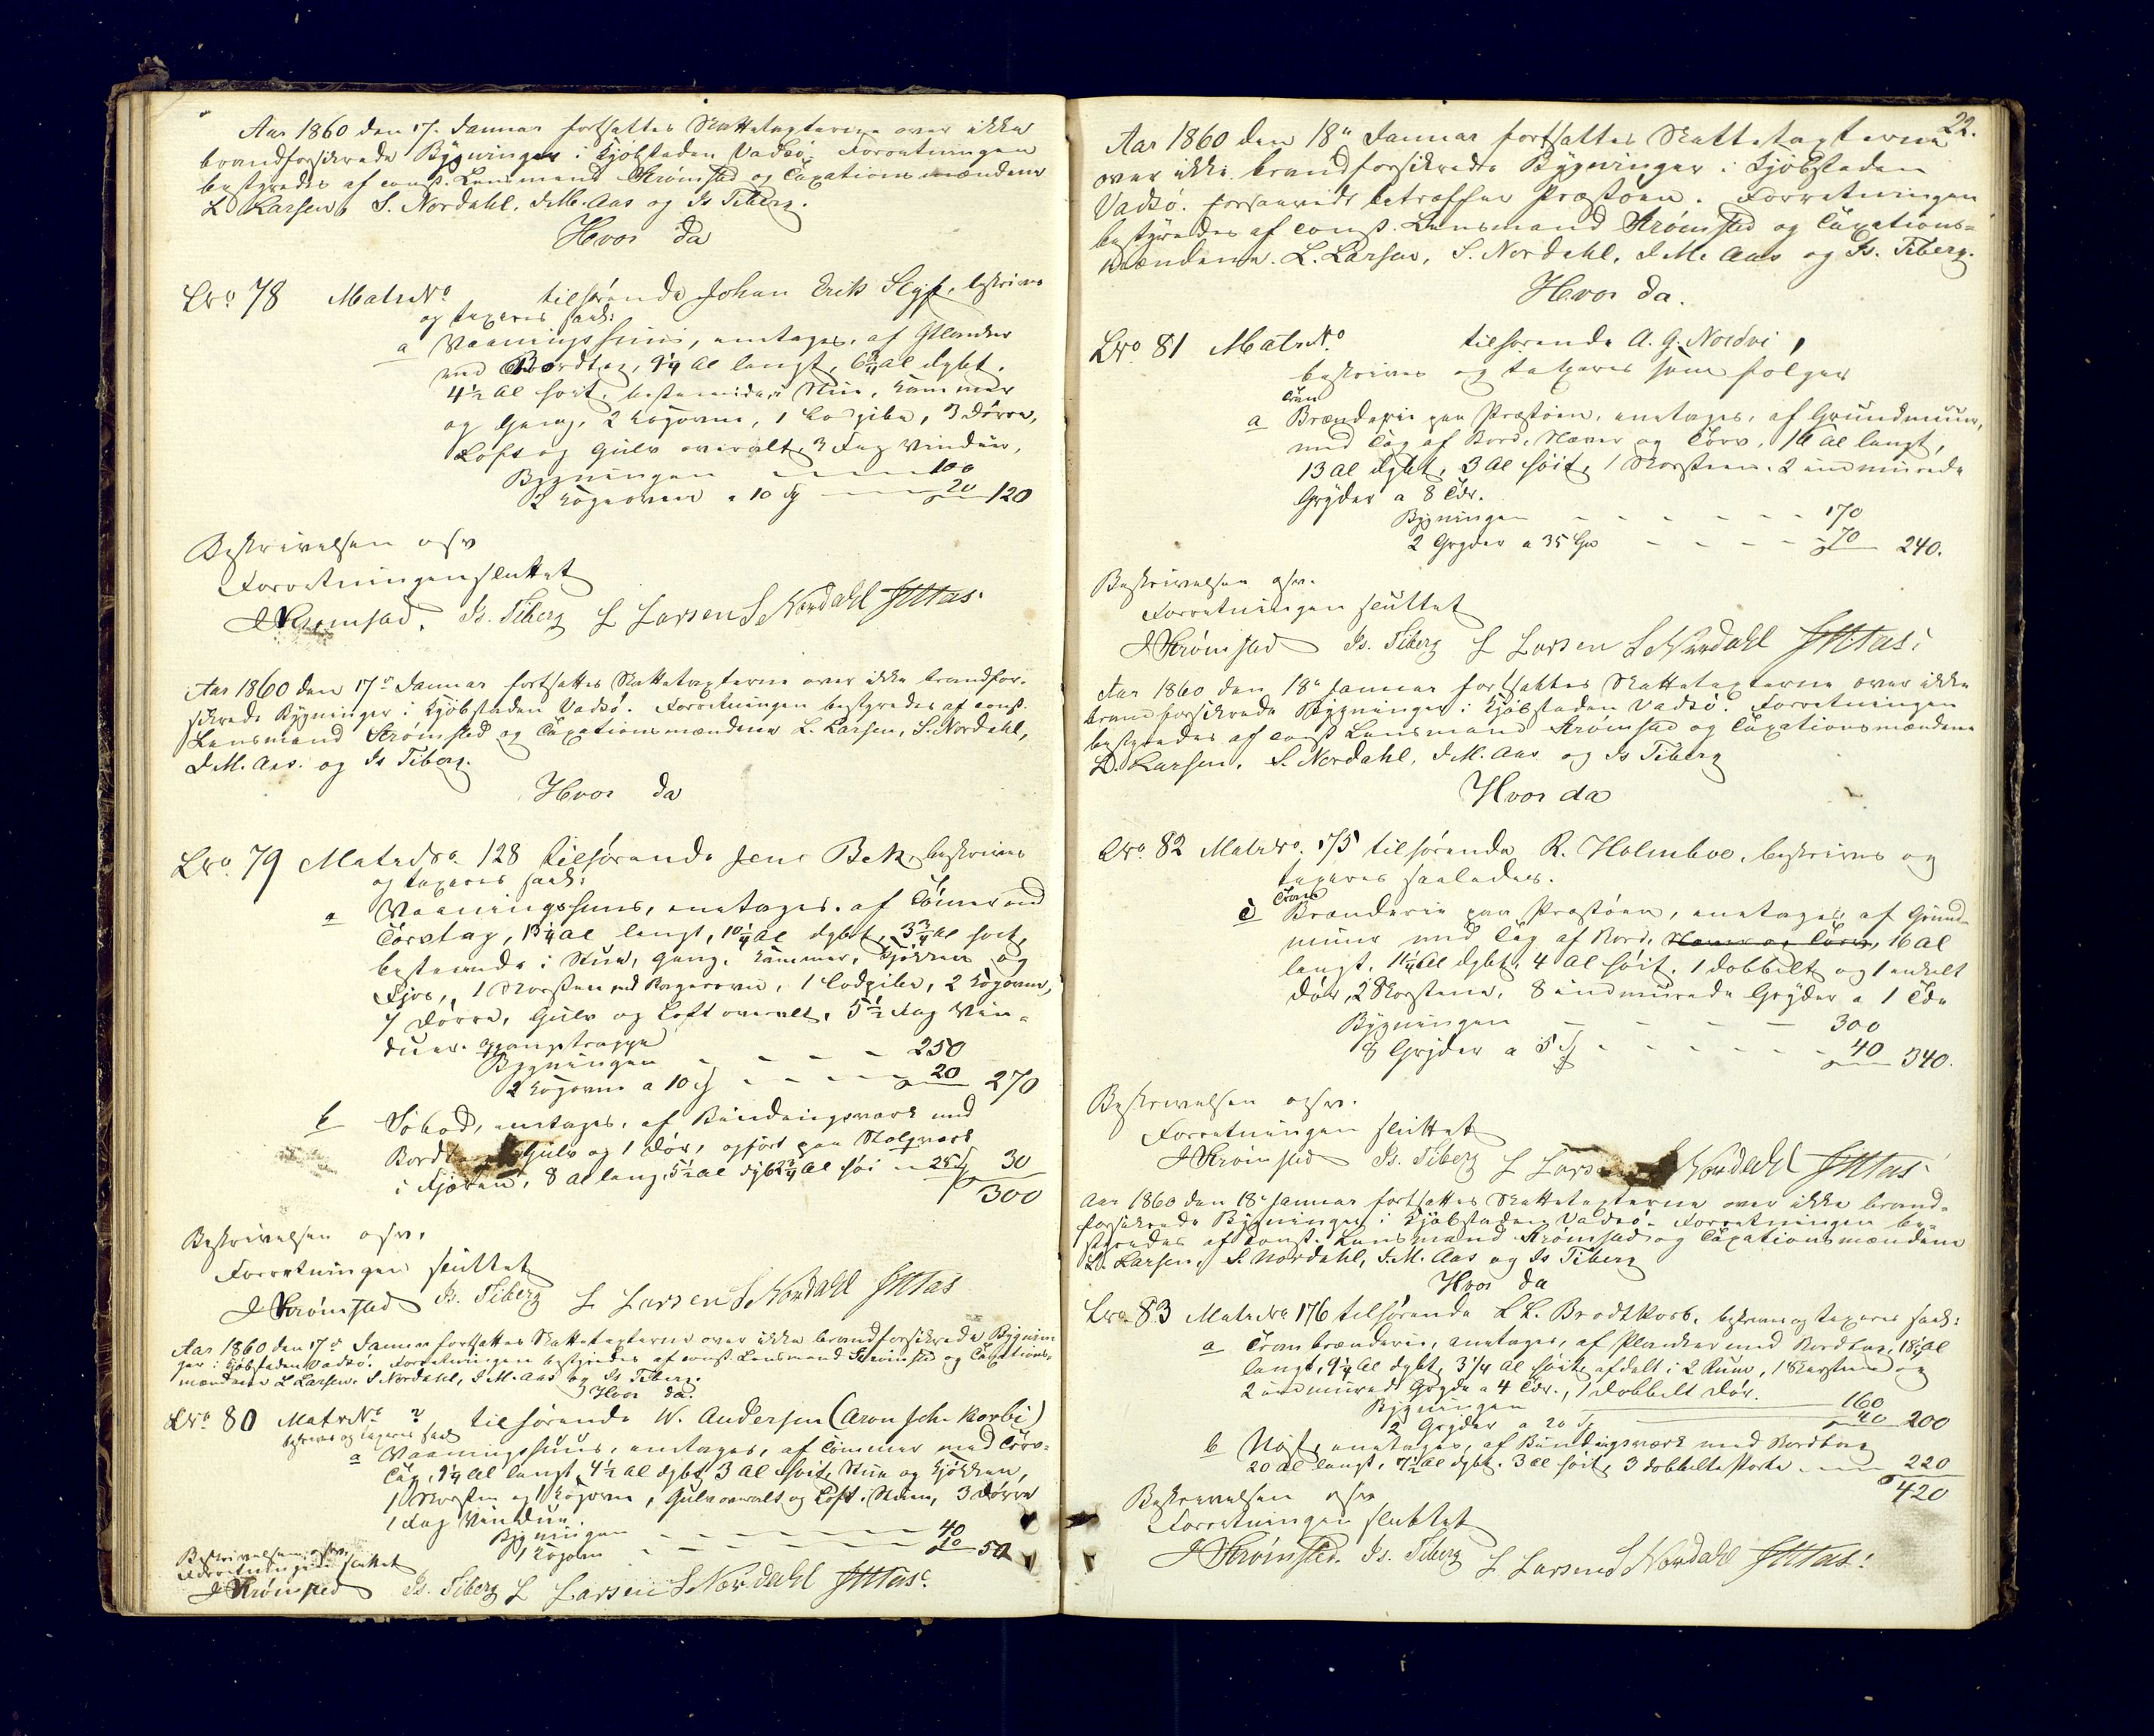 Aar 1860 den 17. Januar fortsattes Skattetaxterne over ikke
brandforsikrede Bygninger i Kjøbstaden Vadsö. Forretningen
bestyredes af const. Lensmand Strømsted og Taxationsmændene
L Larsen, S. Nordahl, J. M. Aas og Is Tiberg.
Hvor da
Lro 78 Matr No tilhørende Johan Erik, beskrives
og taxeres saal:
a Vaaningshuus, enetages, af Planker
med Bordtag, 9¼ Al langt, 6¾ Al dybt,
4½ Al høit, bestaaende i Stue, Kammer
og Gang, 2 Kogovne, 1 Lodpibe, 3 Dørre,
Loft og Gulv overalt, 3 Fag Vinduer,
Bygningen 100
2 Kogeovne a 10 20 120
Beskrivelsen osv
Forretningen sluttet
J Strømsted. Is. Tiberg L Larsen S Nordahl JMAas.
Aar 1860 den 17de Januar fortsattes Skattetaxterne over ikke brandfor-
sikrede Bygninger i Kjøbstaden Vadsö. Forretningen bestyredes af const.
Lensmand Strømsted og Taxationsmændene L. Larsen, S. Nordahl,
J. M. Aas. og Is Tiberg.
Hvor da
Lro. 79 Matr No 128 tilhørende Jens Bek, beskrives
og taxeres saal:
a Vaaningshuus, enetages, af Tömmer med
Törvtag, 13¼ Al langt, 10¼ Al dybt, 3¾ Al høit,
bestaaende i Stue, Gang, Kammer, Kjøkken og
Fjøs, 1 Skorsten med Bagerovn, 1 Lodpibe, 2 Kogovne,
7 Dørre, Gulv og Loft overalt, 5½ Fag Vin-
duer. Opgangstrappe
Bygningen 250
2 Kogovne a 10 20 270
b Søbod, enetages, af Bindingsværk med
Bordtag Gulv og 1 Dør, opført paa Stolpværk
i Fjæren, 8 Al lang, 5½ Al dyb 2¾ Al høi 30
300
Beskrivelsen osv.
Forretningen sluttet
J Strømsted Is. Tiberg L Larsen S Nordahl JMAas
Aar 1860 den 17de Januar fortsattes Skattetaxterne over ikke brandforsikrede Bygnin
ger i Kjøbstaden Vadsö. Forretningen bestyredes af const. Lensmand Strømsted og Taxations-
mændene L Larsen, S Nordahl, J. M. Aas og Is Tiberg.
Hvor da.
Lro 80 Matr No ? tilhørende W. Andersen (Aron Joh. Korbi)
beskrives og taxeres saal
a Vaaningshuus, enetages, af Tømmer med Törv-
tag, 9¼ Al langt, 4½ Al dybt 3 Al høit, Stue og Kjøkken,
1 Skorsten og 1 Kogovn, Gulv overalt og Loft i Stuen, 3 Dørre
1 Fag Vindue.
Bygningen 40
1 Kogovn 10 50
Beskrivelsen osv.
Forretningen sluttet
J Strømsted Is. Tiberg L Larsen S Nordahl JMAas.
22.
Aar 1860 den 18de Januar fortsattes Skattetaxterne
over ikke brandforsikrede Bygninger i Kjøbstaden
Vadsö. forsaavidt betræffer Præstöen. Forretningen
bestyredes af const. Lensmand Strømsted og Taxations-
mændene. L. Larsen, S. Nordahl, J. M. Aas og Is. Tiberg.
Hvor da.
Lro. 81 Matr No tilhørende A. G. Nordvi,
beskrives og taxeres som følger
Tran
a Brænderie paa Præstöen, enetages, af Grundmuur,
med Tag af Bord, Næver og Törv, 16 Al langt,
13 Al dybt, 3 Al høit, 1 Skorsteen, 2 indmurede
Gryder a 8 Tdr.
Bygningen 170
2 Gryder a 35 70 240.
Beskrivelsen osv.
Forretningen sluttet
J Strømsted Is. Tiberg L Larsen S Nordahl JMAas.
Aar 1860 den 18de Januar fortsattes Skattetaxterne over ikke
brandforsikrede Bygninger i Kjøbstaden Vadsö. Forretningen
bestyredes af const Lensmand Strømsted og Taxationsmændene
L. Larsen, S. Nordahl, J. M. Aas og Is Tiberg
Hvor da
Lro. 82 Matr No. 175 tilhørende R. Holmboe, beskrives og
taxeres saaledes.
Tran
c Brænderie paa Præstöen, enetages, af Grund-
muur med Tag af Bord, Næver og Törv, 16 Al
langt, 11¼ Al dybt, 4 Al høit, 1 dobbelt og 1 enkelt
Dør, 2 Skorstene, 8 indmurede Gryder a 1 Tde
Bygningen 300
8 Gryder a 5 40 340.
Beskrivelsen osv.
Forretningen sluttet
J Strømsted Is. Tiberg L Larsen S Nordahl JMAas
Aar 1860 den 18de Januar fortsattes Skattetaxterne over ikke brand-
forsikrede Bygninger i Kjøbstaden Vadsö. Forretningen be-
styredes af const. Lensmand Strømsted og Taxationsmændene
L. Larsen, S. Nordahl, J. M. Aas og Is Tiberg
Hvor da
Lro. 83 Matr No 176 tilhørende L. Brodtkorb, beskrives og taxeres saal:
a Tranbrænderie, enetages, af Planker med Bordtag, 18¼ Al
langt, 9¼ Al dybt, 3¼ Al høit, afdelt i 2 Rum, 1 Skorsteen og
2 indmurede Gryder a 4 Tdr., 1 dobbelt Dør.
Bygningen 160
2 Gryder a 20 40 200
b Nøst, enetages, af Bindingsværk med Bordtag
20 Al langt, 7½ Al dybt, 3 Al høit, 3 dobbelte Porte 220
420
Beskrivelsen osv
Forretningen sluttet
J Strømsted. Is. Tiberg L Larsen S Nordahl JMAas.